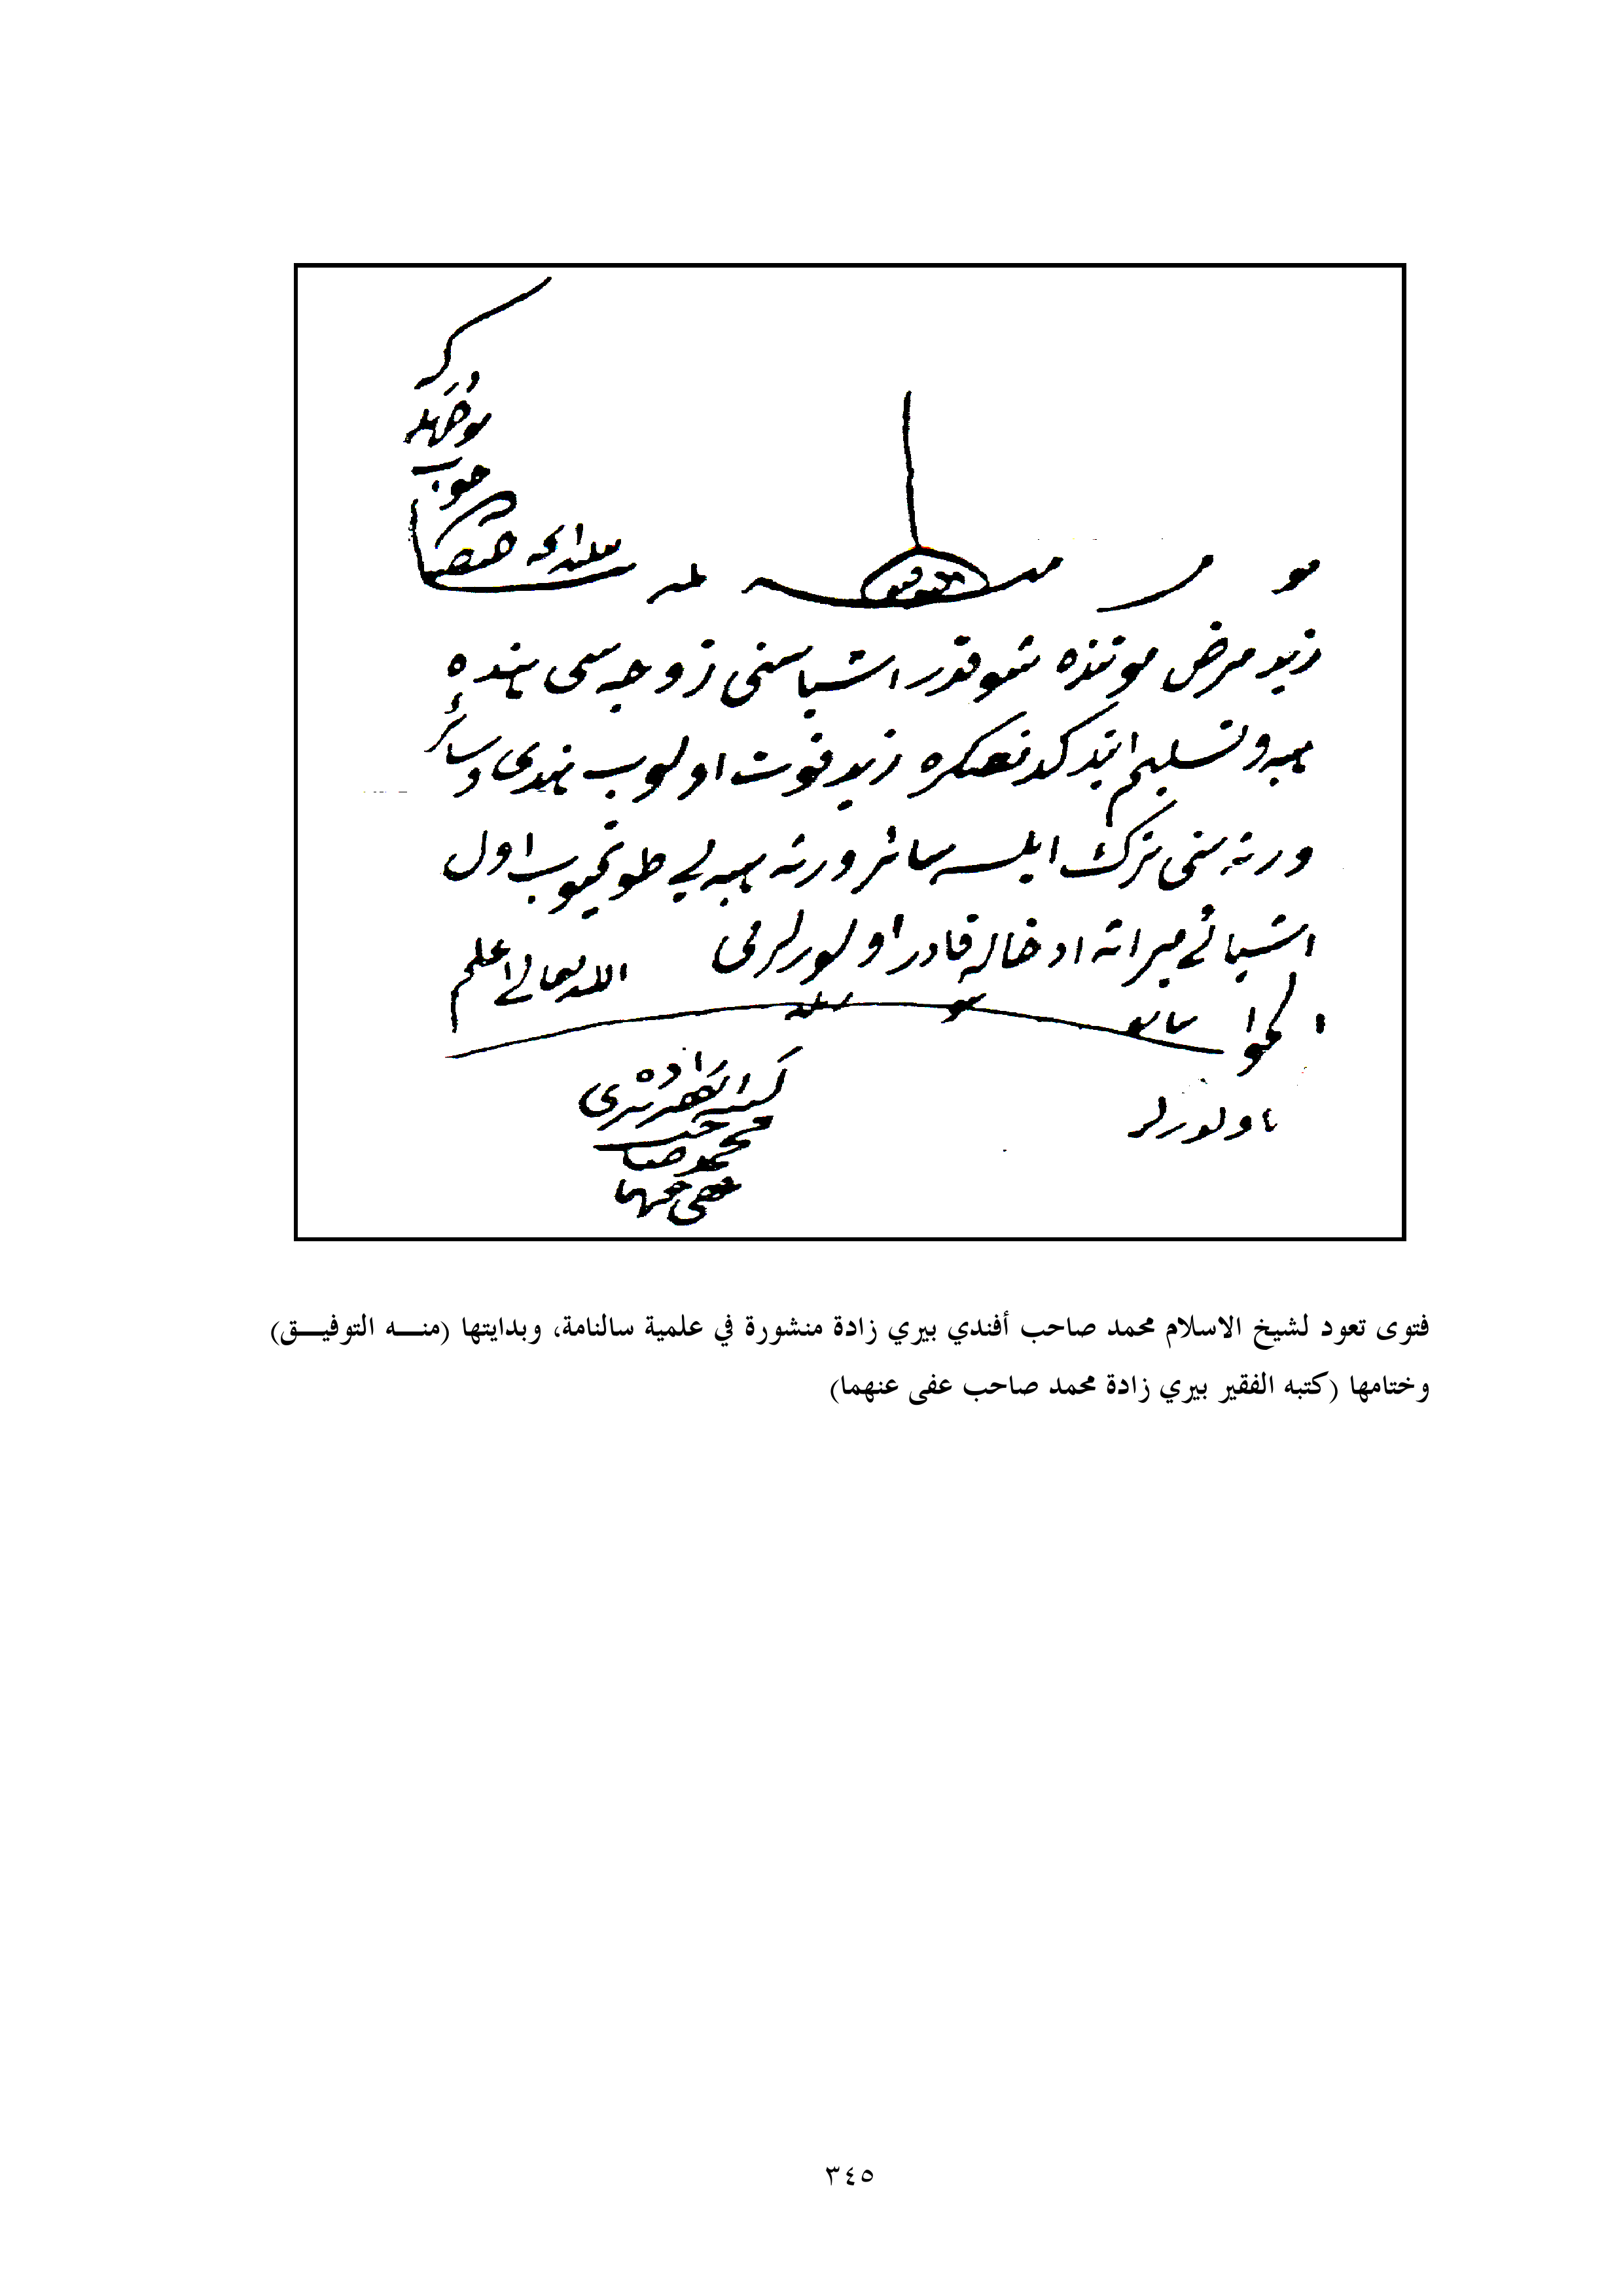 زید مرض موتنده شو قدر اشیاسنی زوجه سی هنده
هبه و تسلیم ایتدکدنصکره زید فوت اولوب هندی و سائر
ورثه سنی ترك ایلسه سائر ورثه هبه یی طوتمیوب اول
اشیائی میراثه ادخاله قادر اولورلرمی الله تعالی اعلم
الجواب
اولورلر
کتبه الفقیر بیری زاده
محمد صاحب
عفی عنهما
فتوى تعود لشيخ الاسلام محمد صاحب أفندي بيري زادة منشورة في علمية سالنامة، وبدايتها (منـــه التوفيـــق)
وختامها (كتبه الفقير بيري زادة محمد صاحب عفى عنهما)
٣٤٥